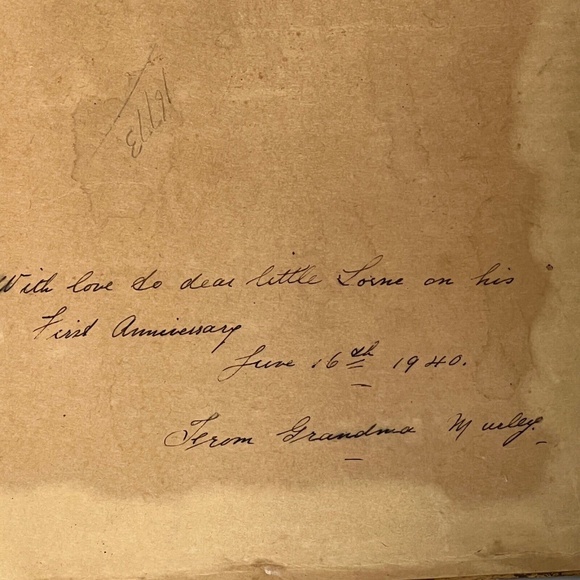 With love to dear little Lorne on his
First Anniversary
June 16th 1940.
From Grandma